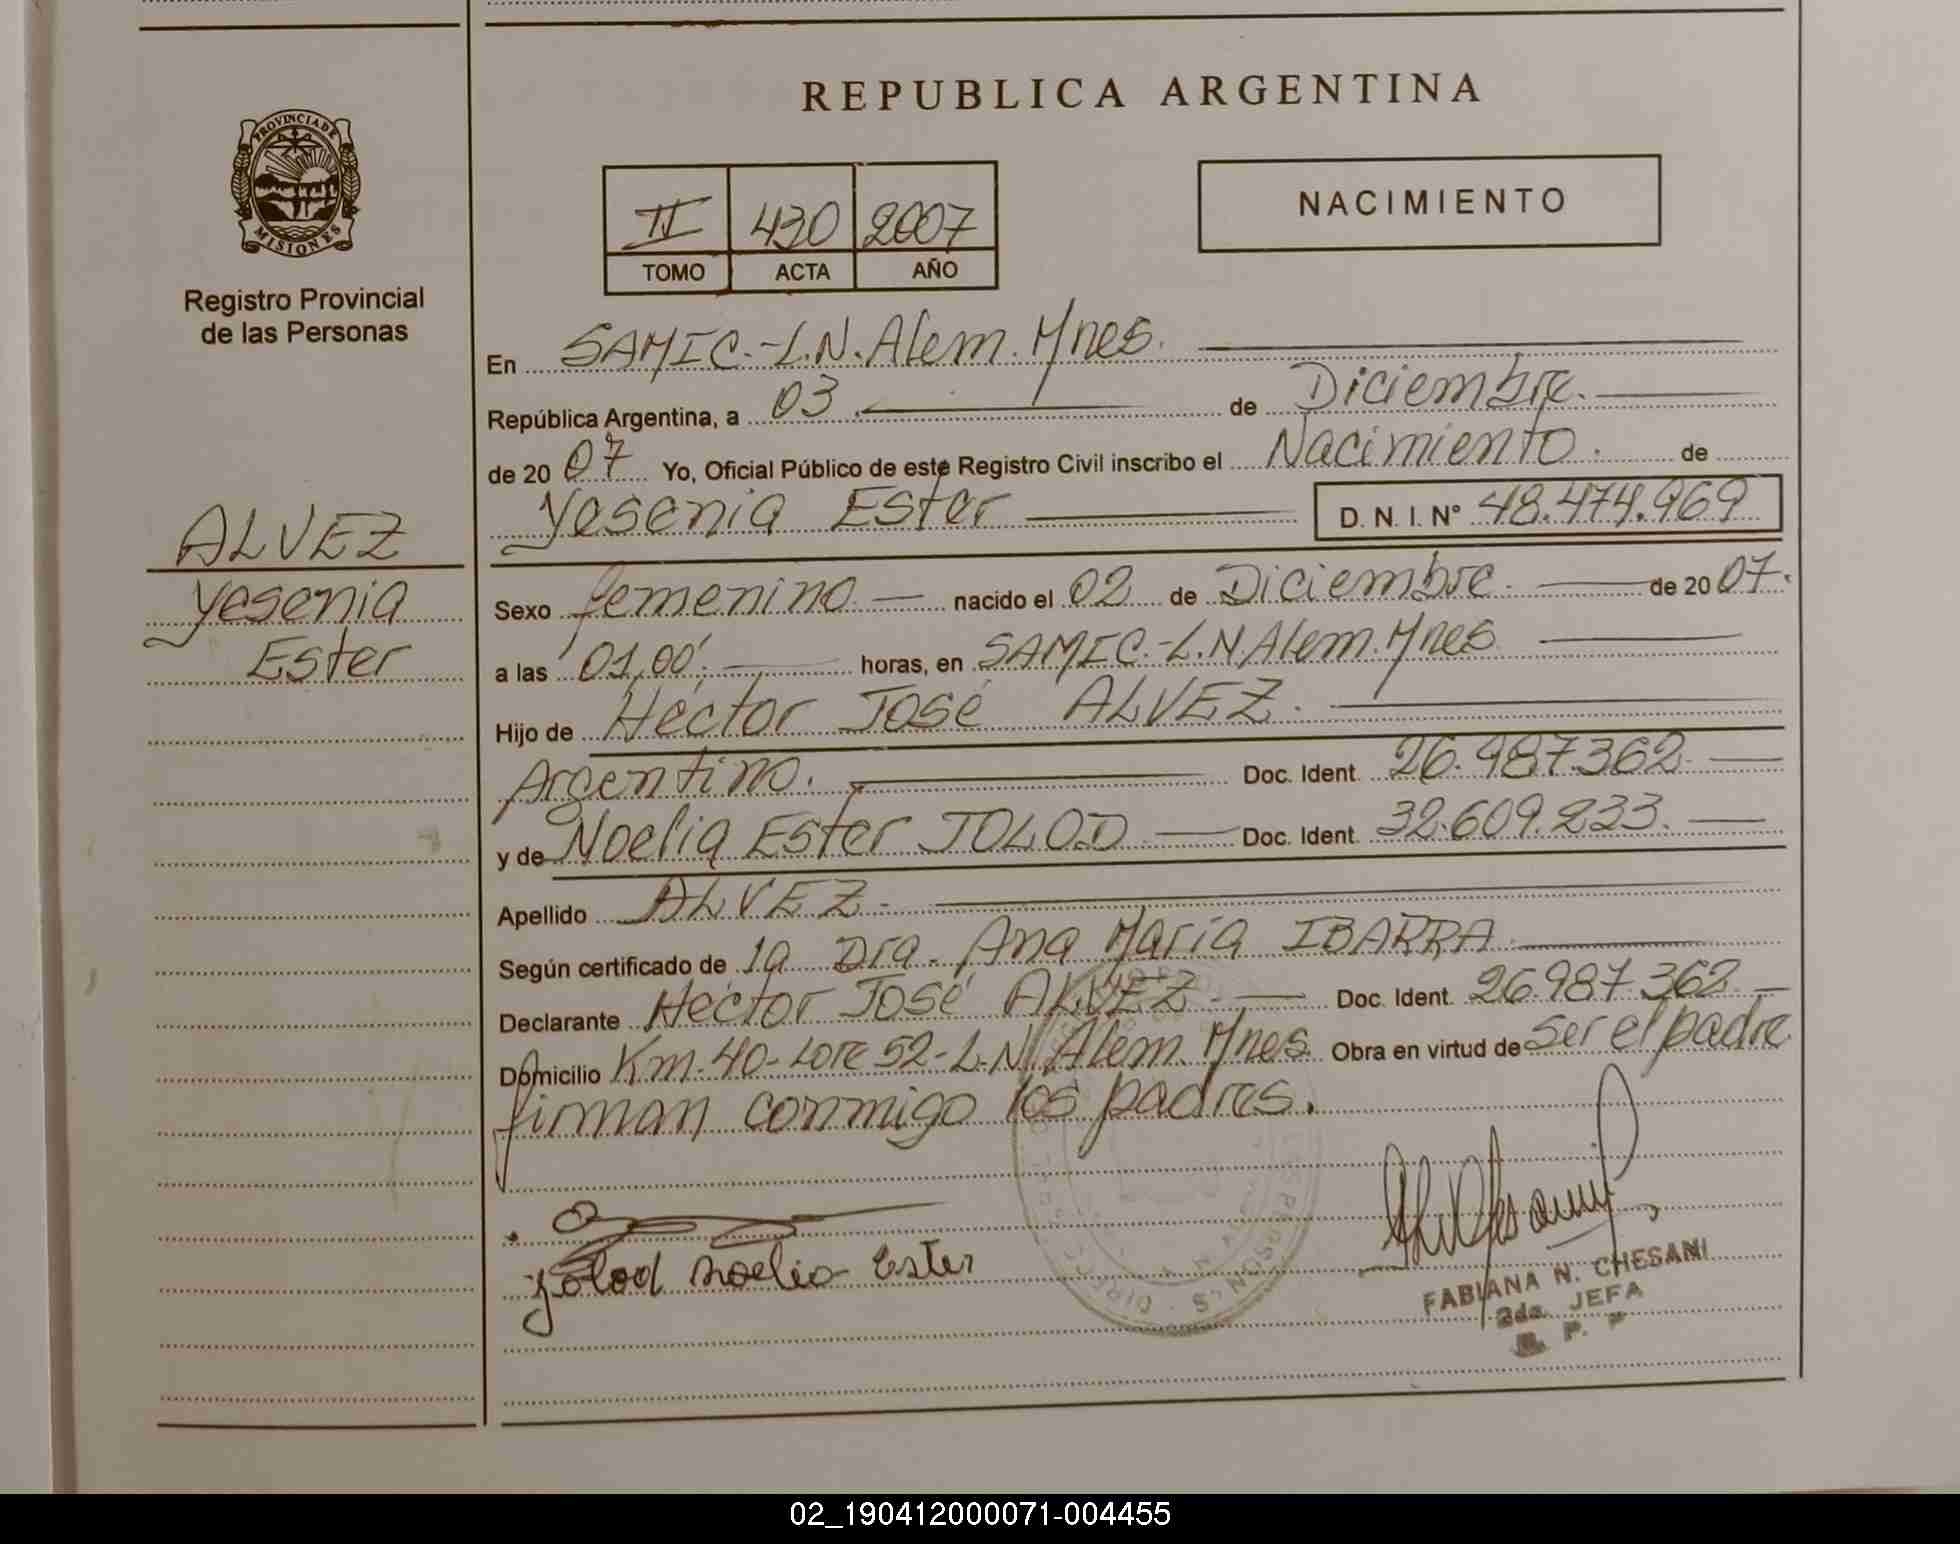 REPUBLICA ARGENTINA
PROVINCIA DE
MISIONES
Registro Provincial
de las Personas
II 430 2007
TOMO ACTA AÑO
NACIMIENTO
En SAMIC.-L.N.Alem.Mnes.
República Argentina, a 03 de Diciembre.
de 20 07 Yo, Oficial Público de este Registro Civil inscribo el Nacimiento. de
Yesenia Ester D. N. I. Nº 48.474.969
ALVEZ
Yesenia
Ester
Sexo femenino nacido el 02 de Diciembre. de 20 07.
a las 01,00'. horas, en SAMIC.-L.N.Alem.Mnes
Hijo de Hector José ALVEZ.
Argentino. Doc. Ident. 26.987.362
y de Noelia Ester JOLOD Doc. Ident. 32.609.233.
Apellido ALVEZ.
Según certificado de la Dra. Ana María IBARRA
Declarante Hector José ALVEZ. Doc. Ident. 26.987.362
Domicilio Km.40-Lote 52-L.N.Alem.Mnes. Obra en virtud de ser el padre
firman conmigo los padres.
Jolod Noelia Ester
FABIANA N. CHESANI
2da. JEFA
R. P. P
02_190412000071-004455